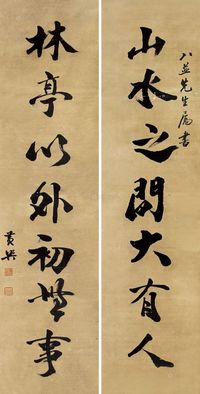 八益先生屬書
山水之間大有人
林亭以外初無事
黃興